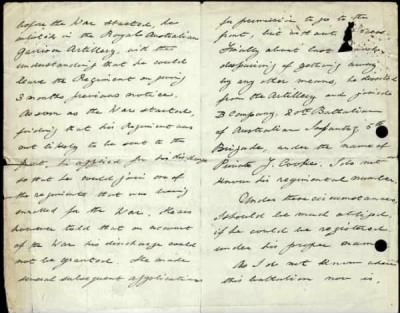 before the War started, he
enlisted in the Royal Australian
Garrison Artillery, with the
understanding that he could
leave the Regiment on giving
3 months previous notice.
As soon as the War started,
finding that his Regiment was
not likely to be sent to the
front, he applied for his discharge
so that he could join one of
the regiments that was being
enrolled for the War. He was
however told that on account
of the War his discharge could
not be granted. He made
several subsequent applications
for permission to go to the
front, but without success.
Finally about last
despairing of getting away
by any other means, he deserted
from the Artillery and joined
D Company, 20th Battalion
of Australian Infantry, 5th
Brigade, under the name of
Private J. Cooper. I do not
know his regimental number.
Under these circumstances,
I should be much obliged,
if he could be registered
under his proper name.
As I do not know where
this battalion now is,